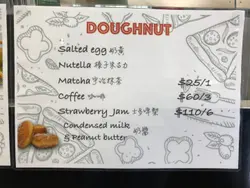 DOUGHNUT
Salted egg 奶黃
Nutella 榛子朱古力
Matcha 宇治抹茶 $25/1
Coffee 咖啡 $60/3
Strawberry Jam 士多啤梨 $110/6
Condensed milk
& Peanut butter 奶醬